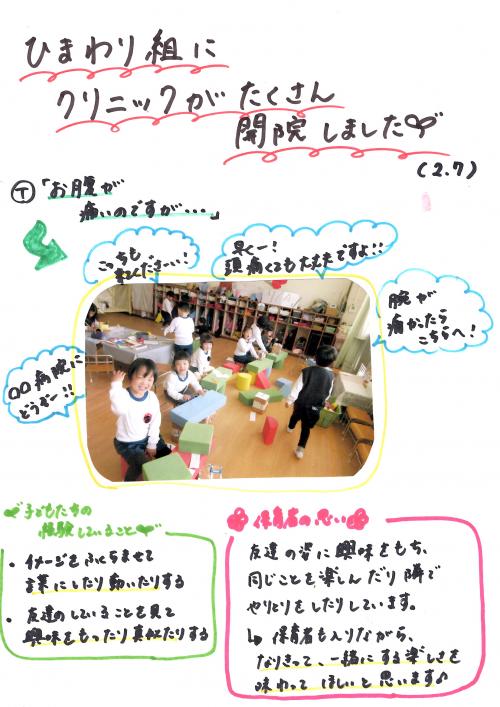 ひまわり組に
クリニックがたくさん
開院しました
(2.7)
Ⓣ「お腹が
痛いのですが・・・」
こっちも
来てくださーい!
早くー!
頭痛くても大丈夫ですよ!!
腕が
痛かったら
こちらへ!
〇〇病院に
どうぞー!!
子どもたちの
経験していること
・イメージをふくらませて
言葉にしたり動いたりする
・友達のしていることを見て
興味をもったり真似たりする
保育者の思い
友達の姿に興味をもち、
同じことを楽しんだり隣で
やりとりをしたりしています。
↳保育者も入りながら、
なりきって、一緒にする楽しさを
味わってほしいと思います♪